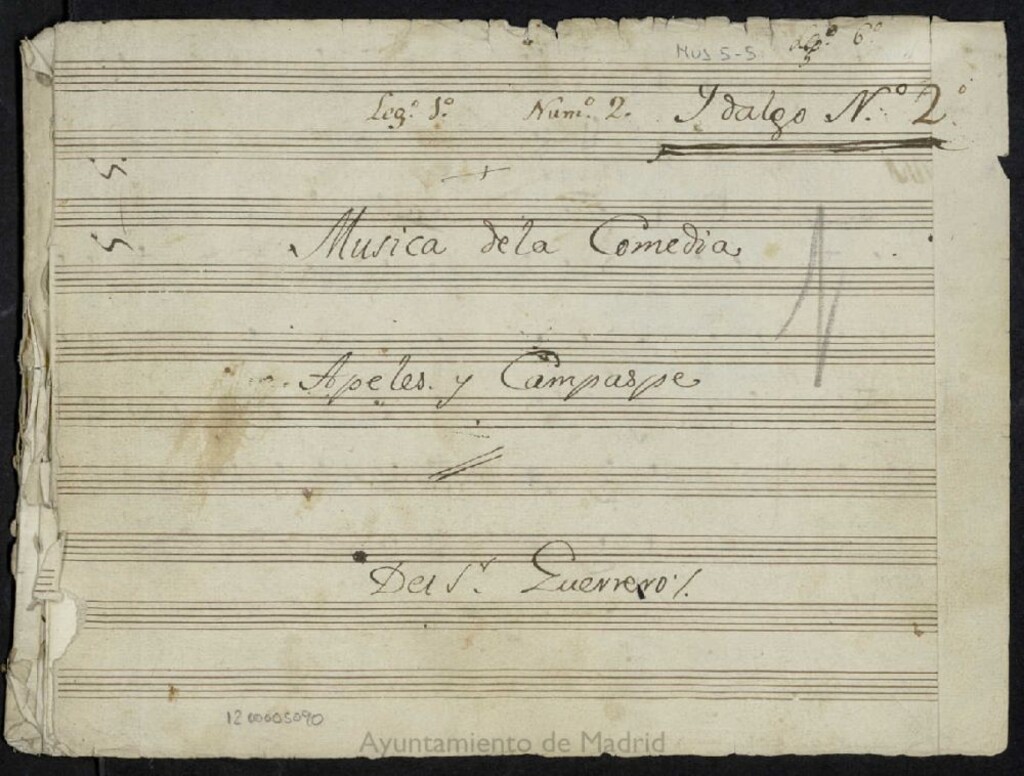 Mus 5-5
6º
Legº 1º Numº 2. Ydalgo Nº 2º
Musica dela Comedia
Apeles y Campaspe
Del Sr Guerrero
1200005090
Ayuntamiento de Madrid